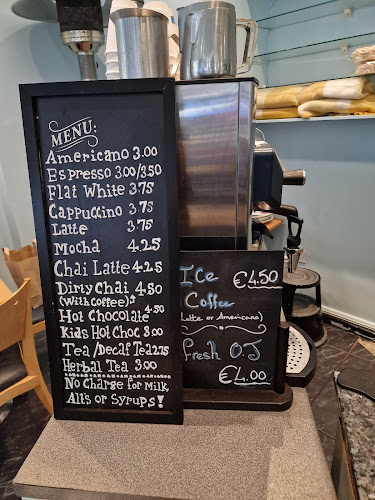 MENU:
Americano 3.00
Espresso 3.00/3.50
Flat White 3.75
Cappuccino 3.75
Latte 3.75
Mocha 4.25
Chai Latte 4.25
Dirty Chai 4.50
(with coffee)
Hot Chocolate 4.50
Kids Hot Choc 3.00
Tea/Decaf Tea 2.75
Herbal Tea 3.00
No Charge for Milk
Alt's or Syrups!
Ice €4.50
Coffee
(Latte or Americano)
Fresh O.J
€4.00